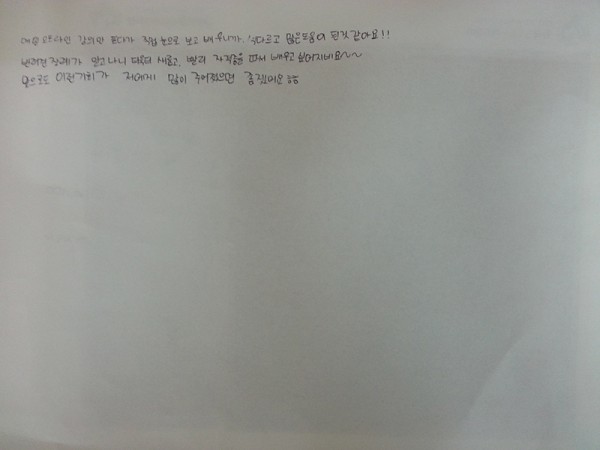 매일 온라인 강의만 보다가 직접 눈으로 보고 배우니까 색다르고 많은도움이 된것같아요!!
반려견 알고나니 더욱더 새롭고, 빨리 자격증을 따서 배우고 싶어지네요~~
앞으로도 이런기회가 저에게 많이 주어졌으면 좋겠어요